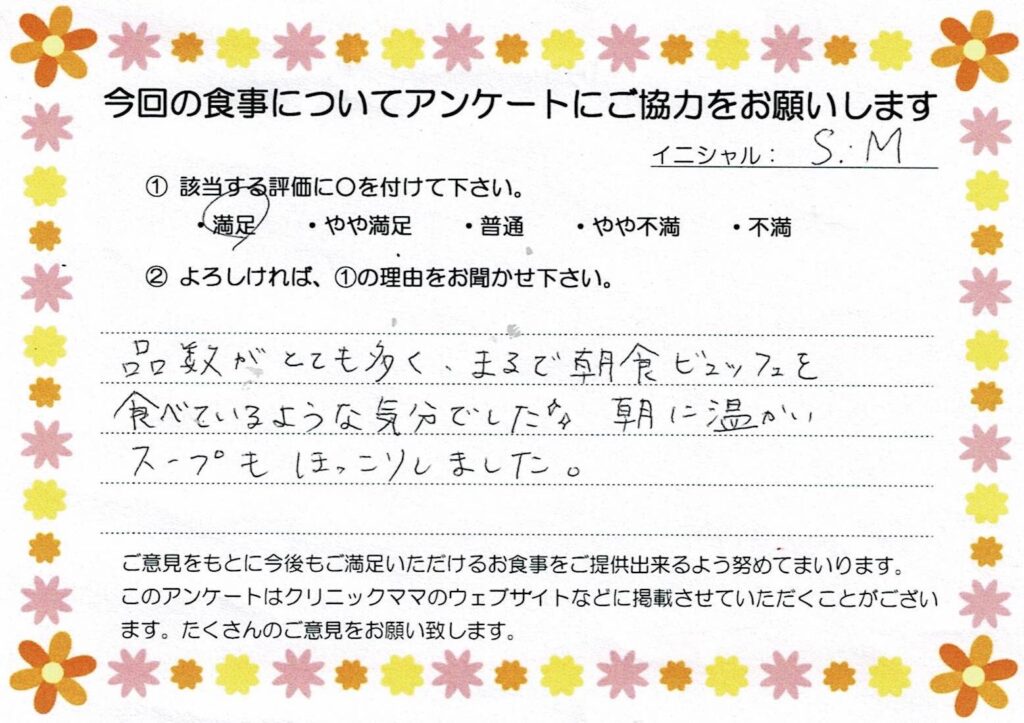 今回の食事についてアンケートにご協力をお願いします
イニシャル： S.M
① 該当する評価に〇を付けて下さい。
・満足 ・やや満足 ・普通 ・やや不満 ・不満
② よろしければ、①の理由をお聞かせ下さい。
品数がとても多く、まるで朝食ビュッフェを
食べているような気分でした✨ 朝に温かい
スープもほっこりしました。
ご意見をもとに今後もご満足いただけるお食事をご提供出来るよう努めてまいります。
このアンケートはクリニックママのウェブサイトなどに掲載させていただくことがござい
ます。たくさんのご意見をお願い致します。